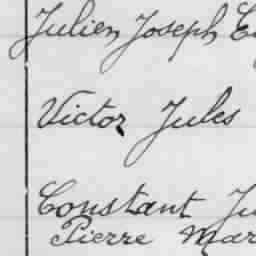 Julien Joseph
Victor Jules
Constant
Pierre